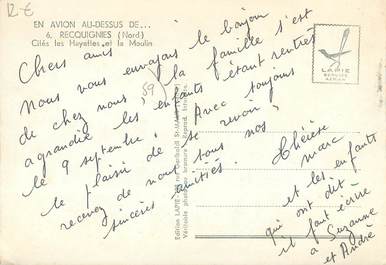 12 €
EN AVION AU-DESSUS DE...
6, RECQUIGNIES (Nord)
Cités les Hayettes et le Moulin
LAPIE
SERVICE
AÉRIEN
Chers amis
Nous vous envoyons le bonjour
de chez nous, la famille s'est
agrandie les enfants étant rentrés
le 9 septembre. Avec toujours
le plaisir de se revoir,
recevez de nous tous nos
sincères amitiés.
Thérèse
Marc
et les enfants
qui ont dit
il faut écrire
à Suzanne
et André
(59)
Edition LAPIE
Véritable photo au bromure - Reprod. interdite.